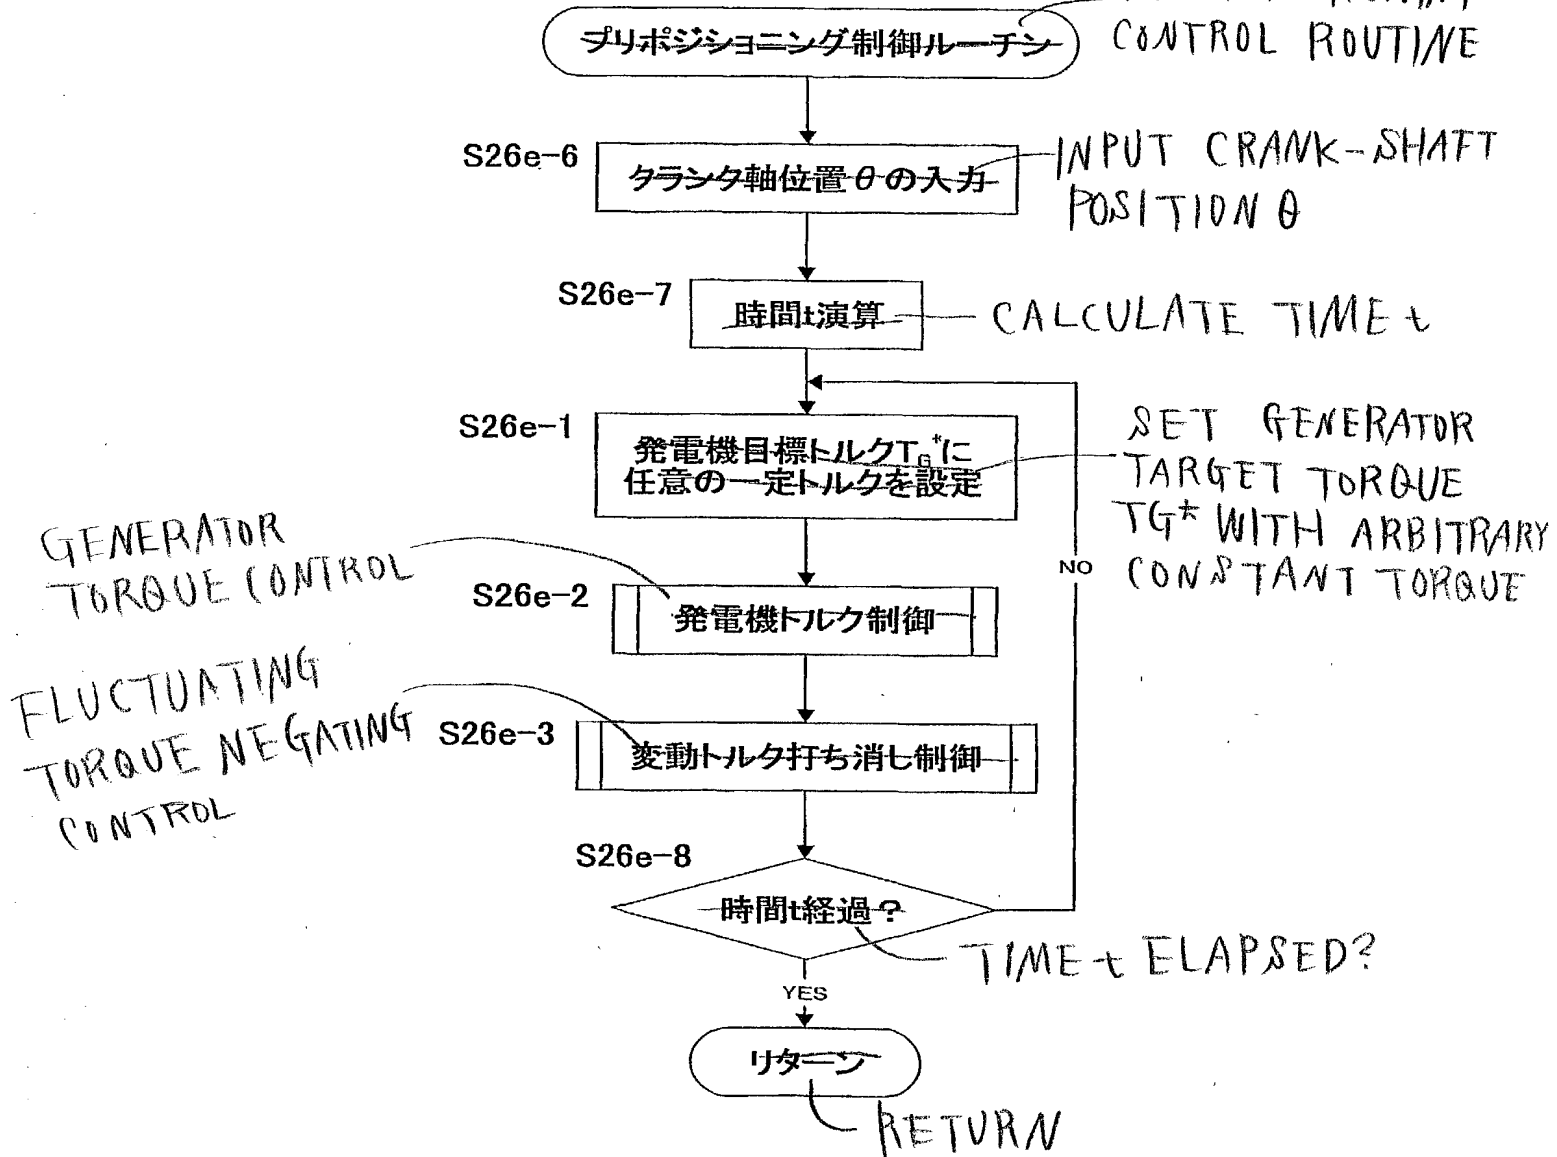 プリポジショニング制御ルーチン
CONTROL ROUTINE
S26e-6
クランク軸位置θの入力
INPUT CRANK-SHAFT
POSITION θ
S26e-7
時間t演算
CALCULATE TIME t
S26e-1
発電機目標トルクTG*に
任意の一定トルクを設定
SET GENERATOR
TARGET TORQUE
TG* WITH ARBITRARY
CONSTANT TORQUE
GENERATOR
TORQUE CONTROL
S26e-2
発電機トルク制御
NO
FLUCTUATING
TORQUE NEGATING
CONTROL
S26e-3
変動トルク打ち消し制御
S26e-8
時間t経過？
TIME t ELAPSED?
YES
リターン
RETURN